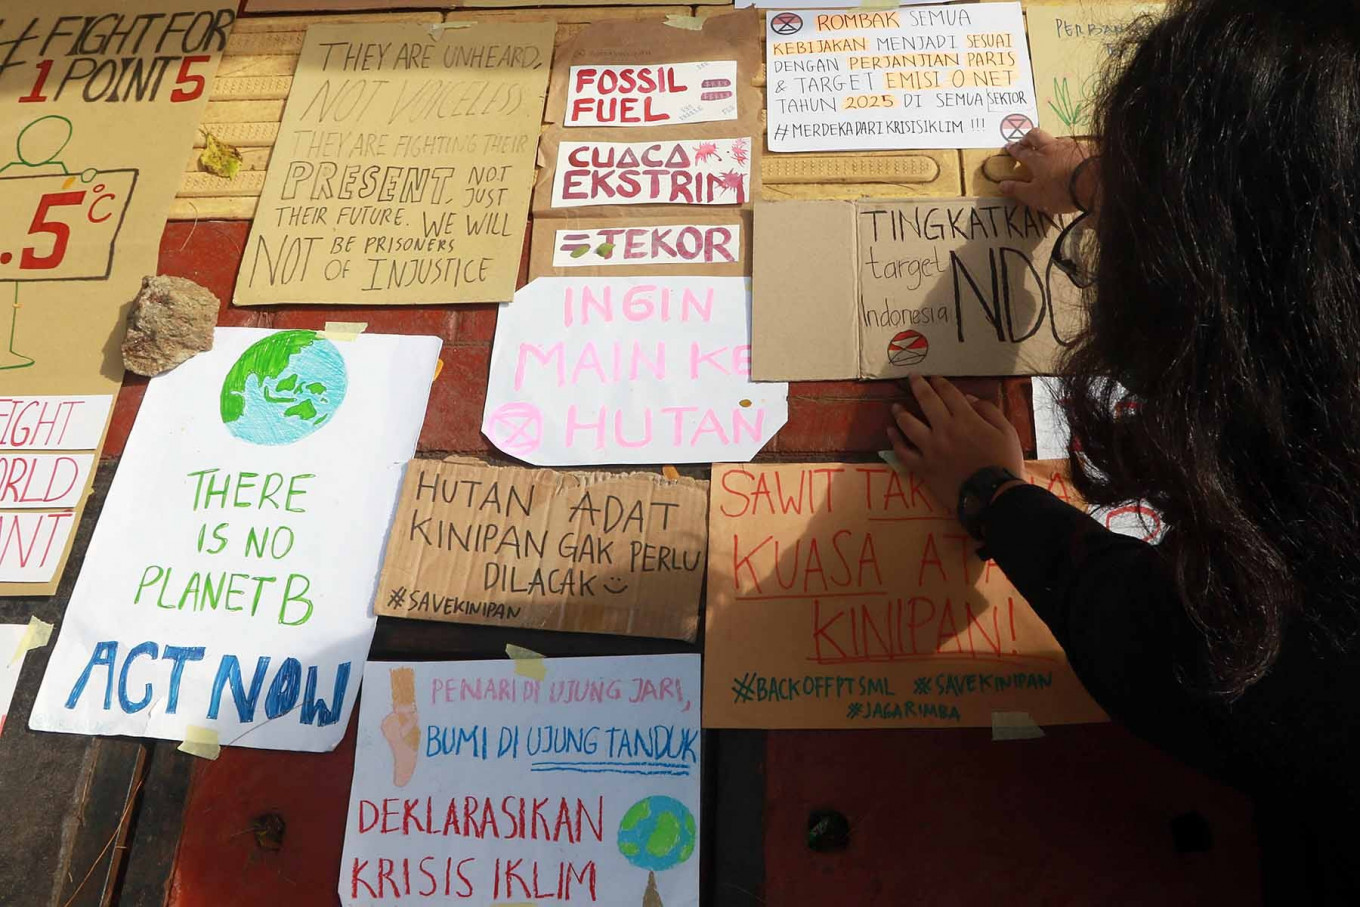 #FIGHT FOR
1 POINT 5
.5°C
THEY ARE UNHEARD,
NOT VOICELESS
THEY ARE FIGHTING THEIR
PRESENT, NOT
JUST
THEIR FUTURE. WE WILL
NOT BE PRISONERS
OF INJUSTICE
FOSSIL
FUEL
CUACA
EKSTRIM
= TEKOR
ROMBAK SEMUA
KEBIJAKAN MENJADI SESUAI
DENGAN PERJANJIAN PARIS
& TARGET EMISI 0 NET
TAHUN 2025 DI SEMUA SEKTOR
#MERDEKADARIKRISISIKLIM !!!
TINGKATKAN
target
Indonesia
NDC
INGIN
MAIN KE
HUTAN
IGHT
ORLD
ANT
THERE
IS NO
PLANET B
ACT NOW
HUTAN ADAT
KINIPAN GAK PERLU
DILACAK
#SAVEKINIPAN
SAWIT TAK
KUASA ATA
KINIPAN!
#BACKOFFPTSML #SAVEKINIPAN
#JAGARIMBA
PENARI DI UJUNG JARI,
BUMI DI UJUNG TANDUK
DEKLARASIKAN
KRISIS IKLIM